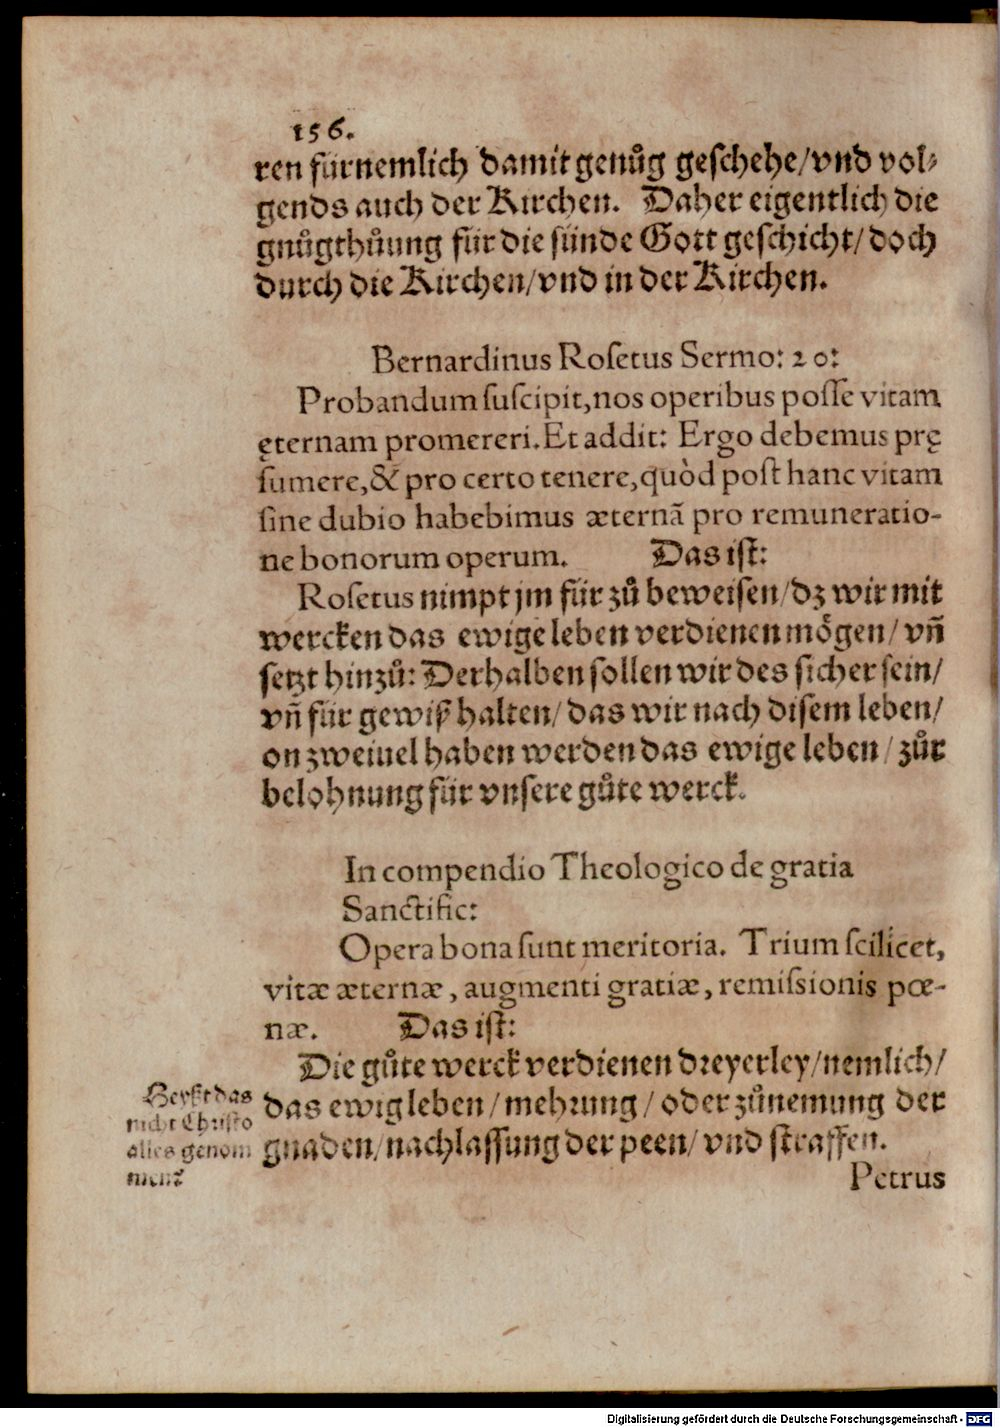 156.
ren fürnemlich damit genůg geschehe/vnd vol⸗
gends auch der Kirchen. Daher eigentlich die
gnůgthůung für die sünde Gott geschicht/ doch
durch die Kirchen/vnd in der Kirchen.
Bernardinus Roſetus Sermo: 20:
Probandum ſuſcipit,nos operibus poſſe vitam
ęternam promereri. Et addit: Ergo debemus prę
ſumere,& pro certo tenere,quòd poſt hanc vitam
ſine dubio habebimus æternã pro remuneratio-
ne bonorum operum. Das iſt:
Roſetus nimpt jm für zů beweiſen/dz wir mit
wercken das ewige leben verdienen mögen/ vñ
ſetzt hinzů: Derhalben ſollen wir des ſicher ſein/
vñ für gewiß halten/ das wir nach diſem leben/
on zweiuel haben werden das ewige leben/ zůr
belohnung für vnſere gůte werck.
In compendio Theologico de gratia
Sanctific:
Opera bona ſunt meritoria. Trium ſcilicet,
vitæ æternæ, augmenti gratiæ, remiſsionis pœ-
næ. Das iſt:
Die gůte werck verdienen dreyerley/nemlich/
das ewig leben/ mehrung/ oder zůnemung der
gnaden/nachlaſſung der peen/ vnd ſtraffen.
Heyſt das
nicht Chriſto
alles genom
men?
Petrus
Digitalisierung gefördert durch die Deutsche Forschungsgemeinschaft - DFG